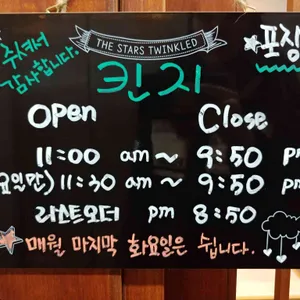 주셔서
감사합니다.
THE STARS TWINKLED
포장
킨지
Open Close
11:00 am ~ 9:50 pm
요일만) 11:30 am ~ 9:50 pm
라스트오더 pm 8:50
매월 마지막 화요일은 쉽니다.